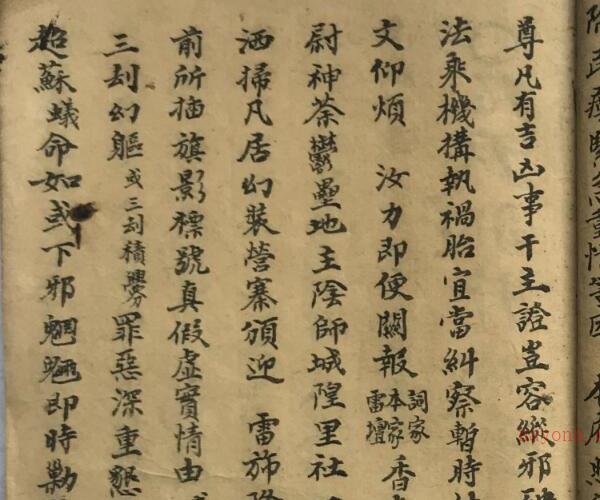 尊凡有吉凶事干主證豈容縱邪
法乘機搆執禍胎宜當糾察暫時
文仰煩 汝力即便關報詞家本家雷壇香
尉神荼鬱壘地主陰師城隍里社
洒掃凡居幻裝營寨頒迎 雷斾
前所插旗影標號真假虛實情由
三刦幻軀或三刦積釁罪惡深重懇
超蘇蟻命如或下邪魍魎即時勦